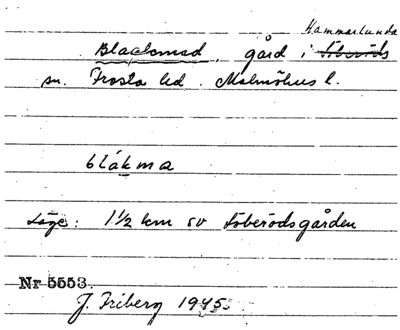 Hammarlunda
Blackmad, gård i Löberöds
sn. Frosta hd. Malmöhus l.
blákma
Läge: 1½ km sv Löberödsgården
Nr 5553.
J. Friberg 1945.